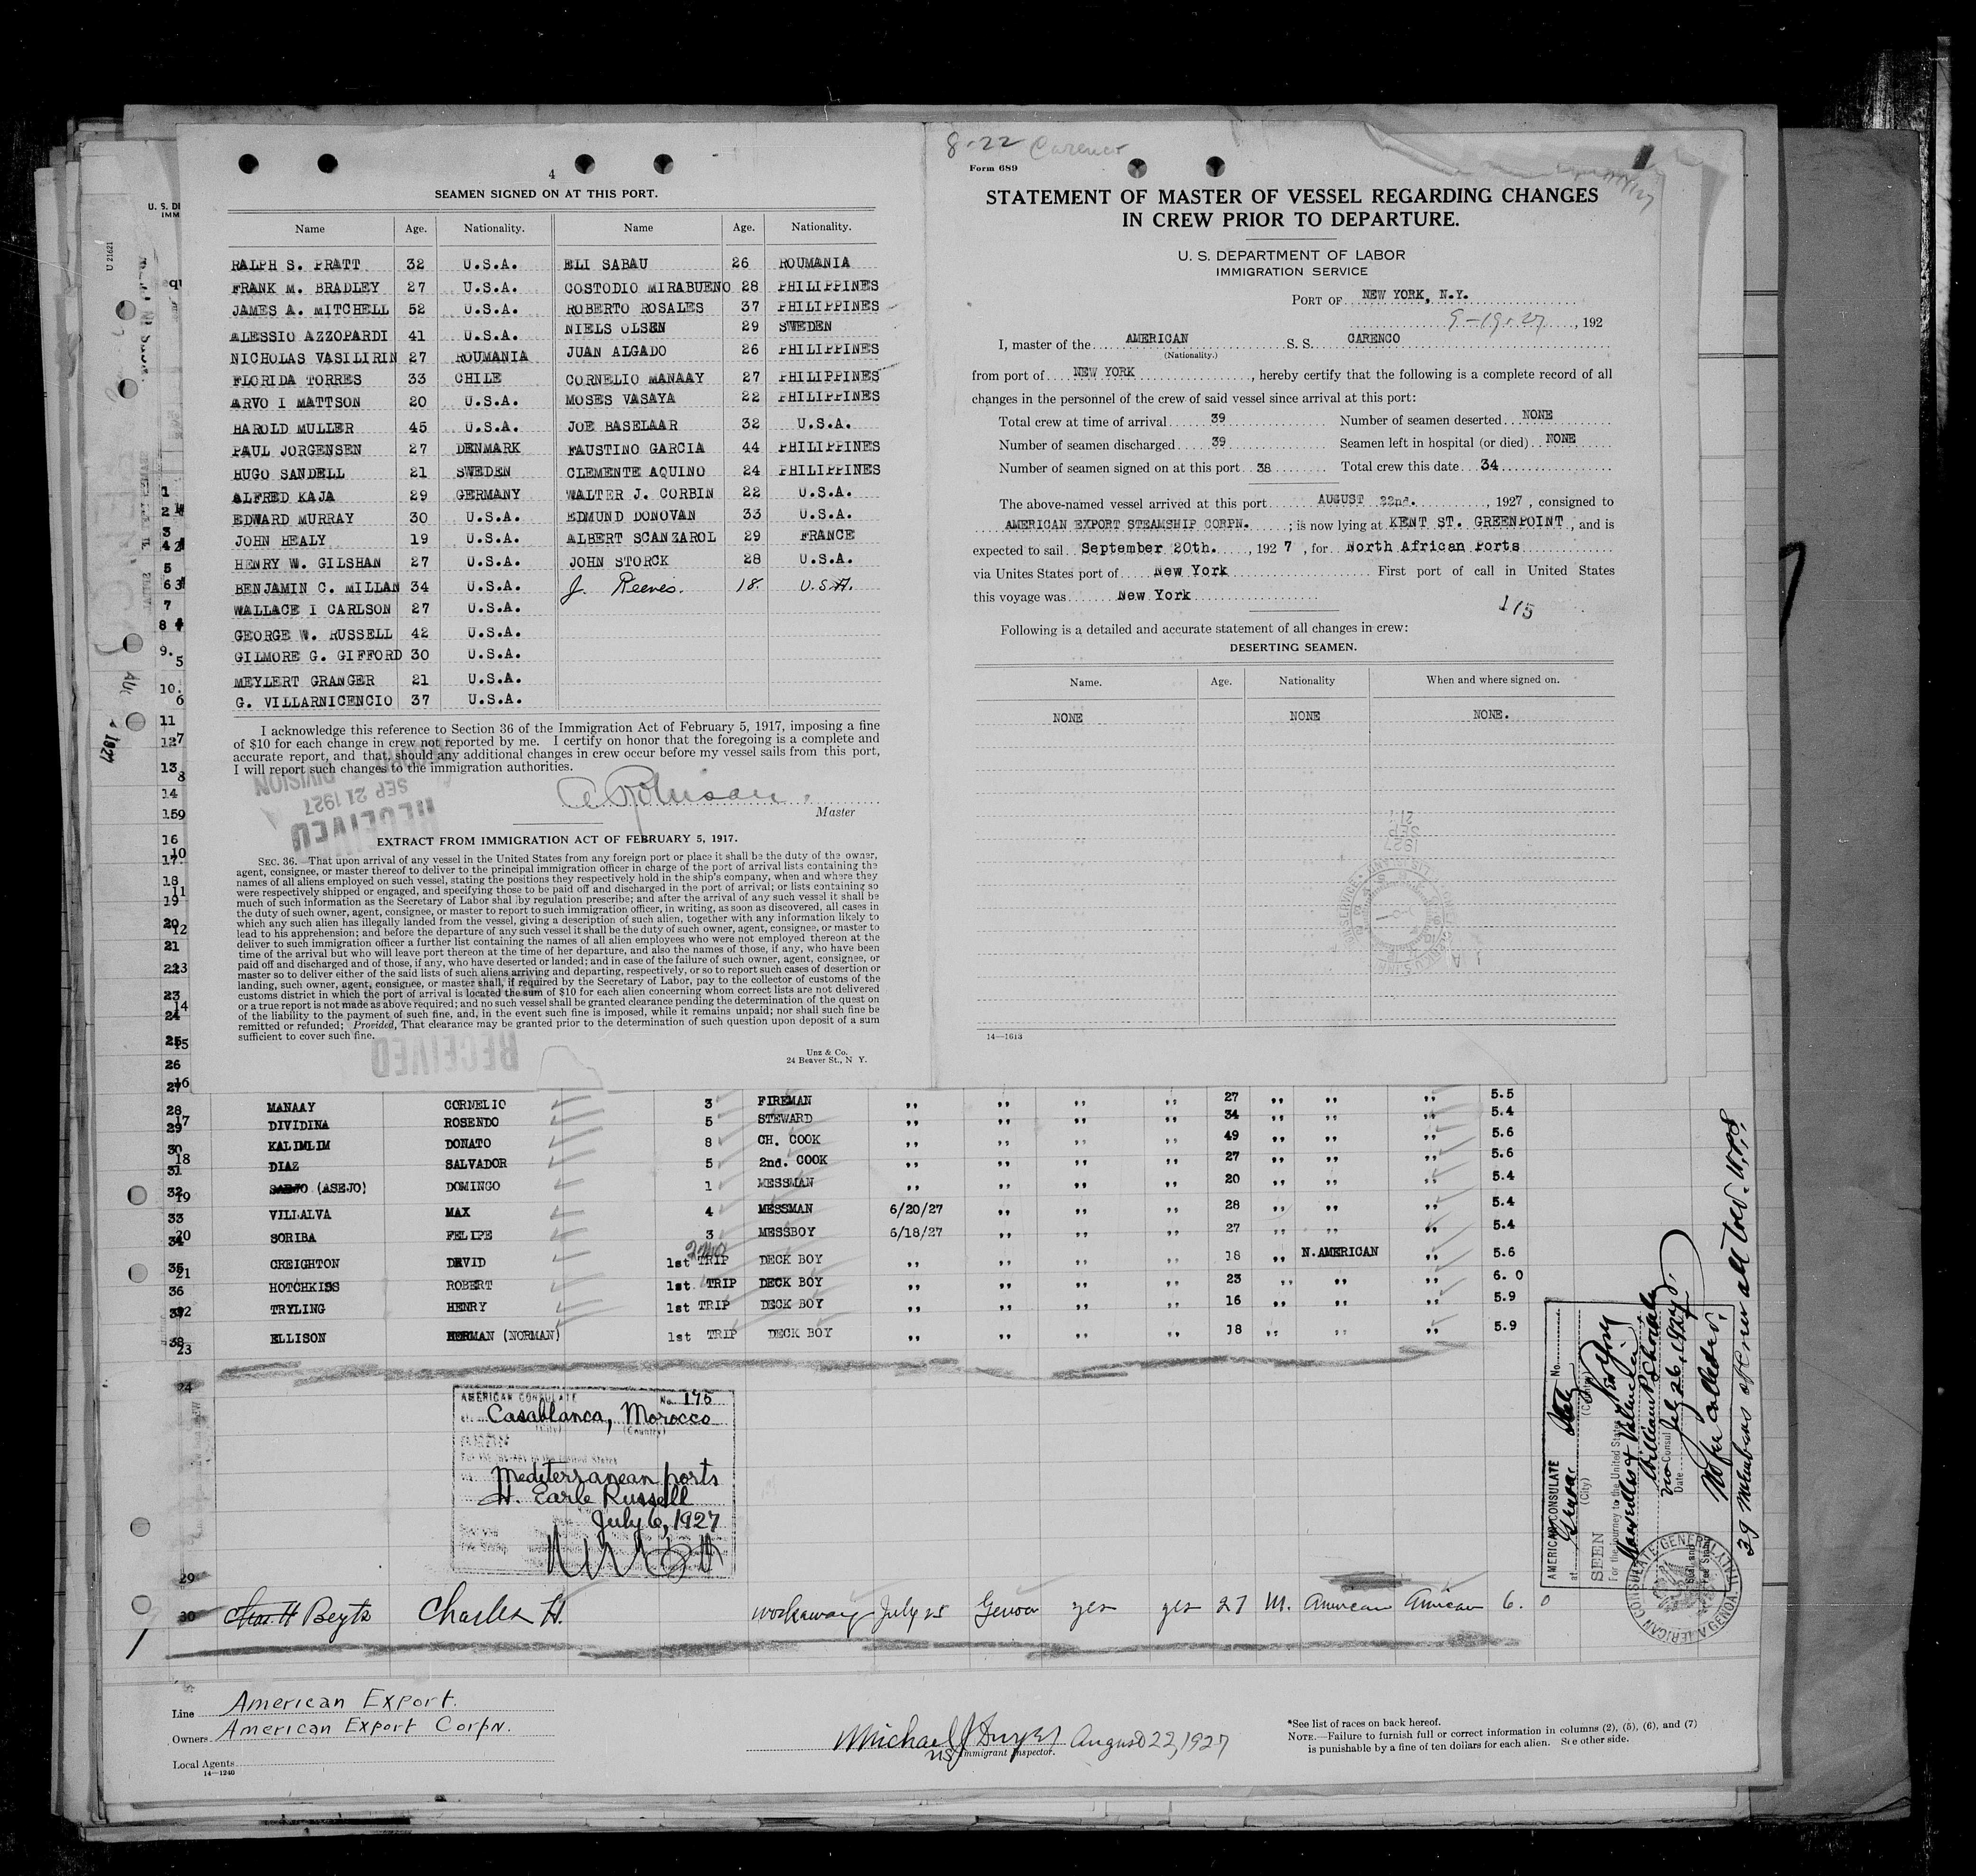 4
SEAMEN SIGNED ON AT THIS PORT.
Name Age. Nationality. Name Age. Nationality.
RALPH S. PRATT 32 U.S.A. ELI SABAU 26 ROUMANIA
FRANK M. BRADLEY 27 U.S.A. COSTODIO MIRABUENO 28 PHILIPPINES
JAMES A. MITCHELL 52 U.S.A. ROBERTO ROSALES 37 PHILIPPINES
ALESSIO AZZOPARDI 41 U.S.A. NIELS OLSEN 29 SWEDEN
NICHOLAS VASILIRIN 27 ROUMANIA JUAN ALGADO 26 PHILIPPINES
FLORIDA TORRES 33 CHILE CORNELIO MANAAY 27 PHILIPPINES
ARVO I MATTSON 20 U.S.A. MOSES VASAYA 22 PHILIPPINES
HAROLD MULLER 45 U.S.A. JOE BASELAAR 32 U.S.A.
PAUL JORGENSEN 27 DENMARK FAUSTINO GARCIA 44 PHILIPPINES
HUGO SANDELL 21 SWEDEN CLEMENTE AQUINO 24 PHILIPPINES
ALFRED KAJA 29 GERMANY WALTER J. CORBIN 22 U.S.A.
EDWARD MURRAY 30 U.S.A. EDMUND DONOVAN 33 U.S.A.
JOHN HEALY 19 U.S.A. ALBERT SCANZAROL 29 FRANCE
HENRY W. GILSHAN 27 U.S.A. JOHN STORCK 28 U.S.A.
BENJAMIN C. MILLAN 34 U.S.A. J. Reeves. 18. U.S.A.
WALLACE I CARLSON 27 U.S.A.
GEORGE W. RUSSELL 42 U.S.A.
GILMORE G. GIFFORD 30 U.S.A.
MEYLERT GRANGER 21 U.S.A.
G. VILLARNICENCIO 37 U.S.A.
I acknowledge this reference to Section 36 of the Immigration Act of February 5, 1917, imposing a fine
of $10 for each change in crew not reported by me. I certify on honor that the foregoing is a complete and
accurate report, and that, should any additional changes in crew occur before my vessel sails from this port,
I will report such changes to the immigration authorities.
RECEIVED
SEP 21 1927
DIVISION
Robinson.
Master
EXTRACT FROM IMMIGRATION ACT OF FEBRUARY 5, 1917.
SEC. 36. That upon arrival of any vessel in the United States from any foreign port or place it shall be the duty of the owner,
agent, consignee, or master thereof to deliver to the principal immigration officer in charge of the port of arrival lists containing the
names of all aliens employed on such vessel, stating the positions they respectively hold in the ship's company, when and where they
were respectively shipped or engaged, and specifying those to be paid off and discharged in the port of arrival; or lists containing so
much of such information as the Secretary of Labor shal lby regulation prescribe; and after the arrival of any such vessel it shall be
the duty of such owner, agent, consignee, or master to report to such immigration officer, in writing, as soon as discovered, all cases in
which any such alien has illegally landed from the vessel, giving a description of such alien, together with any information likely to
lead to his apprehension; and before the departure of any such vessel it shall be the duty of such owner, agent, consignee, or master to
deliver to such immigration officer a further list containing the names of all alien employees who were not employed thereon at the
time of the arrival but who will leave port thereon at the time of her departure, and also the names of those, if any, who have been
paid off and discharged and of those, if any, who have deserted or landed; and in case of the failure of such owner, agent, consignee, or
master so to deliver either of the said lists of such aliens arriving and departing, respectively, or so to report such cases of desertion or
landing, such owner, agent, consignee, or master shall, if required by the Secretary of Labor, pay to the collector of customs of the
customs district in which the port of arrival is located the sum of $10 for each alien concerning whom correct lists are not delivered
or a true report is not made as above required; and no such vessel shall be granted clearance pending the determination of the quest on
of the liability to the payment of such fine, and, in the event such fine is imposed, while it remains unpaid; nor shall such fine be
remitted or refunded; Provided, That clearance may be granted prior to the determination of such question upon deposit of a sum
sufficient to cover such fine.
RECEIVED
Unz & Co.
24 Beaver St., N Y.
8-22 Carenco
Form 689
STATEMENT OF MASTER OF VESSEL REGARDING CHANGES
IN CREW PRIOR TO DEPARTURE.
U. S. DEPARTMENT OF LABOR
IMMIGRATION SERVICE
PORT OF NEW YORK, N.Y.
9-19-27, 192
I, master of the AMERICAN S. S. CARENCO
(Nationality.)
from port of NEW YORK, hereby certify that the following is a complete record of all
changes in the personnel of the crew of said vessel since arrival at this port:
Total crew at time of arrival 39 Number of seamen deserted NONE
Number of seamen discharged 39 Seamen left in hospital (or died) NONE
Number of seamen signed on at this port 38 Total crew this date 34
The above-named vessel arrived at this port AUGUST 22nd., 1927, consigned to
AMERICAN EXPORT STEAMSHIP CORPN. ; is now lying at KENT ST. GREENPOINT, and is
expected to sail September 20th., 1927, for North African Ports
via Unites States port of New York First port of call in United States
this voyage was New York
175
Following is a detailed and accurate statement of all changes in crew:
DESERTING SEAMEN.
Name. Age. Nationality When and where signed on.
NONE NONE NONE.
14—1613
28 MANAAY CORNELIO 3 FIREMAN ,, ,, ,, ,, 27 ,, ,, ,, 5.5
29 DIVIDINA ROSENDO 5 STEWARD ,, ,, ,, ,, 34 ,, ,, ,, 5.4
30 KALIMLIM DONATO 8 CH. COOK ,, ,, ,, ,, 49 ,, ,, ,, 5.6
31 DIAZ SALVADOR 5 2nd. COOK ,, ,, ,, ,, 27 ,, ,, ,, 5.6
32 (ASEJO) DOMINGO 1 MESSMAN ,, ,, ,, ,, 20 ,, ,, ,, 5.4
33 VILLALVA MAX 4 MESSMAN 6/20/27 ,, ,, ,, 28 ,, ,, ,, 5.4
34 SORIBA FELIPE 3 MESSBOY 6/18/27 ,, ,, ,, 27 ,, ,, ,, 5.4
35 CREIGHTON DAVID 1st TRIP DECK BOY ,, ,, ,, ,, 18 ,, N.AMERICAN ,, 5.6
36 HOTCHKISS ROBERT 1st TRIP DECK BOY ,, ,, ,, ,, 23 ,, ,, ,, 6. 0
37 TRYLING HENRY 1st TRIP DECK BOY ,, ,, ,, ,, 16 ,, ,, ,, 5.9
38 ELLISON HERMAN (NORMAN) 1st TRIP DECK BOY ,, ,, ,, ,, 18 ,, ,, ,, 5.9
AMERICAN CONSULATE No. 175
Casablanca, Morocco
(City) (Country)
Mediterranean ports
H. Earle Russell
July 6, 1927
29
30 Chas. H Beyts Charles H. workaway July 25 Genoa yes yes 27 M. American American 6. 0
AMERICAN CONSULATE No.
at Genoa, Italy
(City)
SEEN
For the journey to the United States
William P. Shockley
Vice Consul
Date July 26, 1927
No fee collected.
AMERICAN CONSULATE GENERAL GENOA, ITALY
39 Members of Crew
Line American Export.
Owners American Export Corpn.
Local Agents
14—1240
Michael J Dwyer August 22, 1927
US Immigrant Inspector.
*See list of races on back hereof.
NOTE.—Failure to furnish full or correct information in columns (2), (5), (6), and (7)
is punishable by a fine of ten dollars for each alien. See other side.